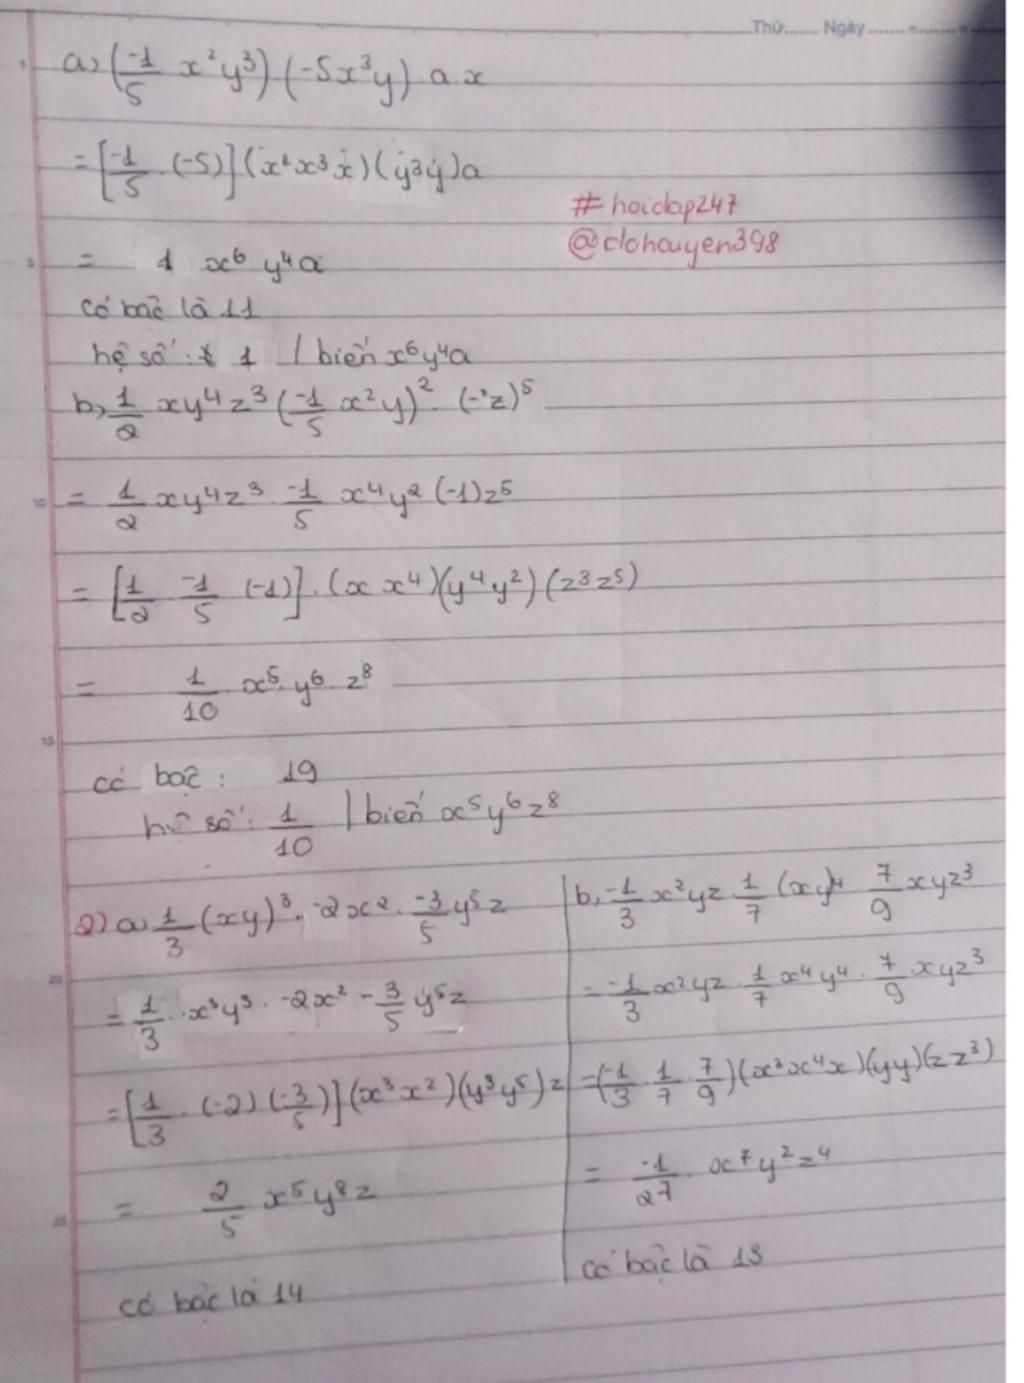 Thứ....... Ngày
a, (-1/5 x²y³) . (-5x³y) a.x
= [-1/5 . (-5)] (x²x³x) (y³y)a
#hoidap247
@dohauyen398
= 1 x⁶ y⁴a
có bậc là 11
hệ số : 1 | biến x⁶y⁴a
b, 1/2 xy⁴z³ (-1/5 x²y)² . (-z)⁵
= 1/2 xy⁴z³ -1/5 x⁴y² (-1)z⁵
= [1/2 -1/5 (-1)] . (x x⁴)(y⁴y²)(z³z⁵)
= 1/10 x⁵ y⁶ z⁸
có bậc : 19
hệ số : 1/10 | biến x⁵y⁶z⁸
2) a, 1/3 (xy)³ . -2x² . -3/5 y⁵z
= 1/3 . x³y³ . -2x² - 3/5 y⁵z
= [1/3 . (-2) (-3/5)] (x³x²)(y³y⁵)z
= 2/5 x⁵y⁸z
có bậc là 14
b, -1/3 x²yz 1/7 (xy)⁴ 7/9 xyz³
= -1/3 x²yz . 1/7 x⁴y⁴ . 7/9 xyz³
= (-1/3 . 1/7 . 7/9) (x²x⁴x)(yy)(zz³)
= -1/27 . x⁷y²z⁴
có bậc là 13